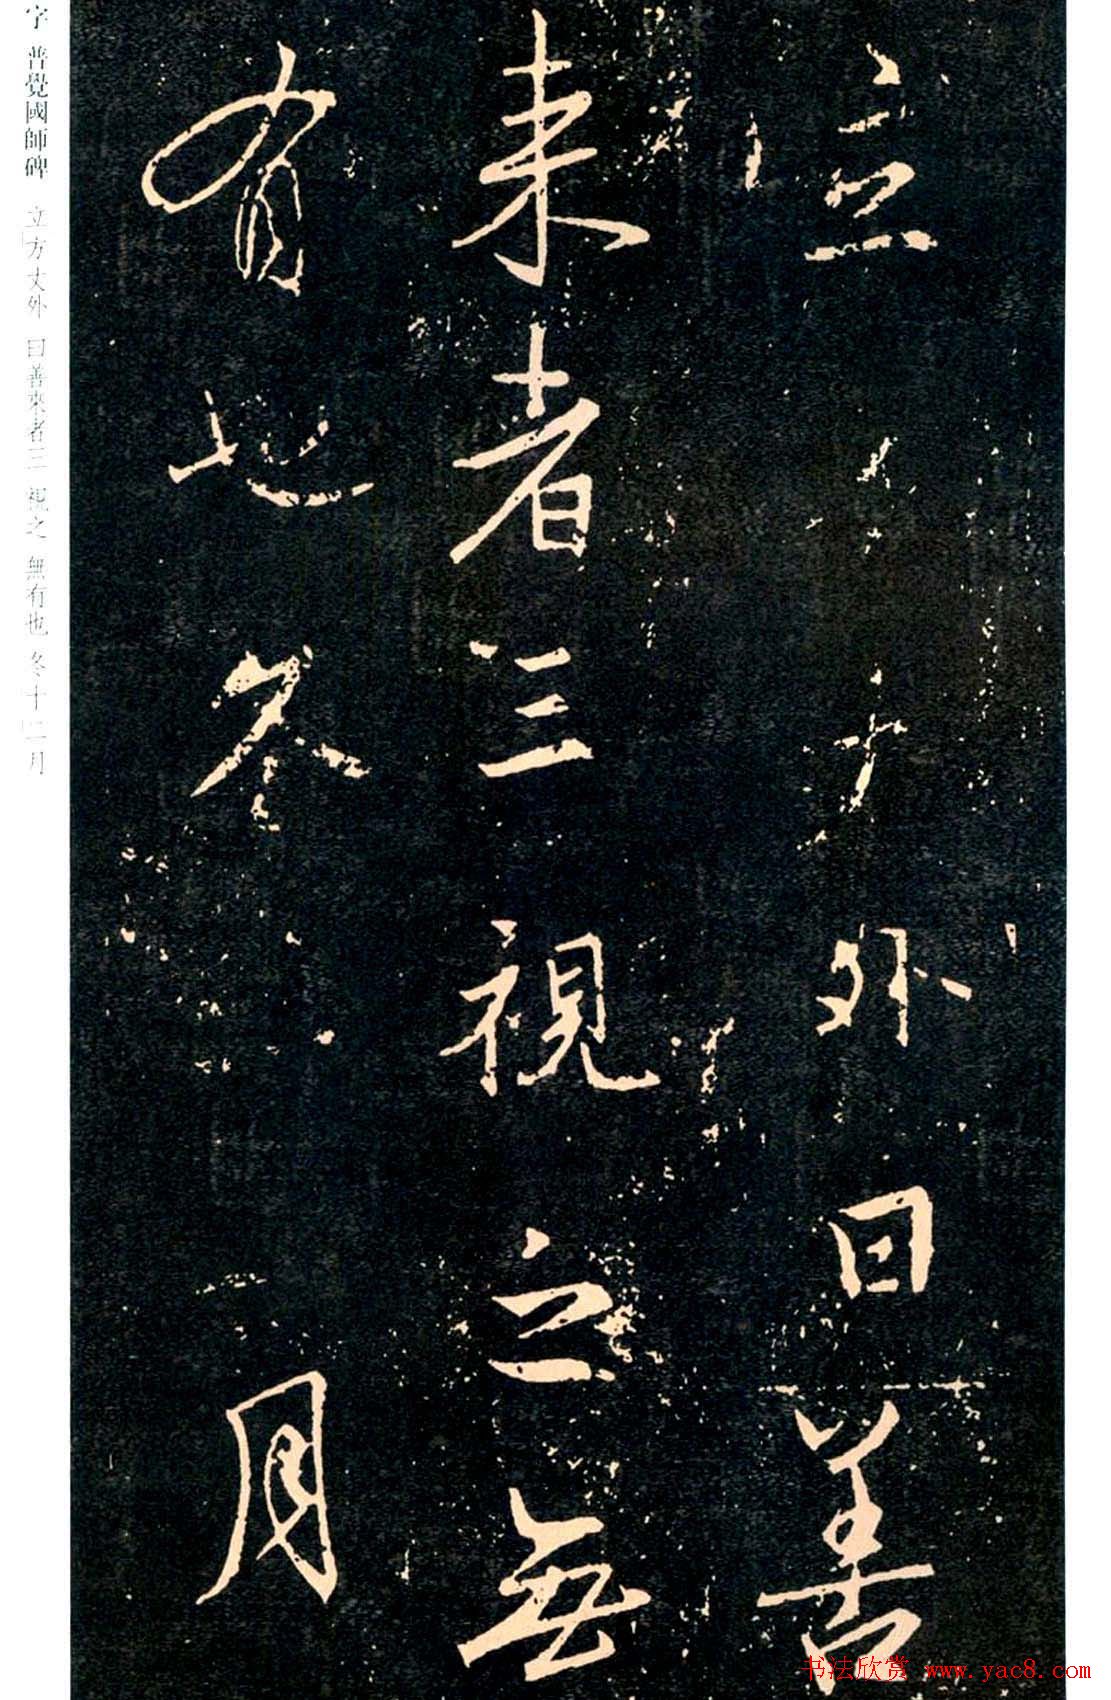 立方丈外曰善
来者三視之無
有也冬十二月
字 普覺國師碑 立方丈外 曰善來者三 視之 無有也 冬十二月
书法欣赏 www.yac8.com